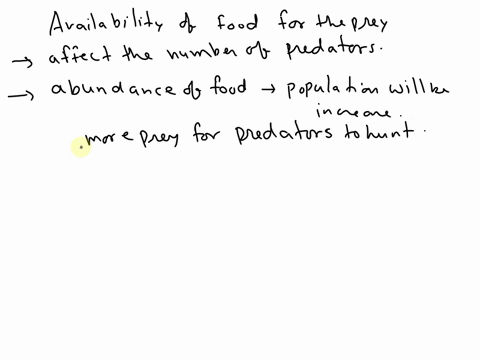 Availability of food for the prey
→ affect the number of predators.
→ abundance of food → population will be
increase.
more prey for predators to hunt.